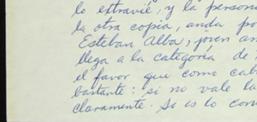 lo estravié, y la person
la otra copia, anda po
Esteban Alba, joven am
llega a la categoría de
el favor que como cab
bastante: si no vale la
claramente. Si es lo con